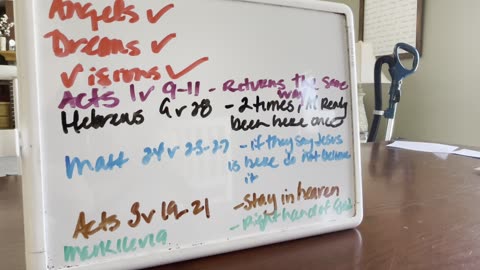 Angels ✓
Dreams ✓
Visions ✓
Acts 1v 9-11 - Returns the same way
Hebrews 9v28 - 2 times, Already
been here once
Matt 24v 23-27 - if they say Jesus
is here do not believe
it
Acts 3v19-21 - stay in heaven
Mark16v19 - Right hand of God